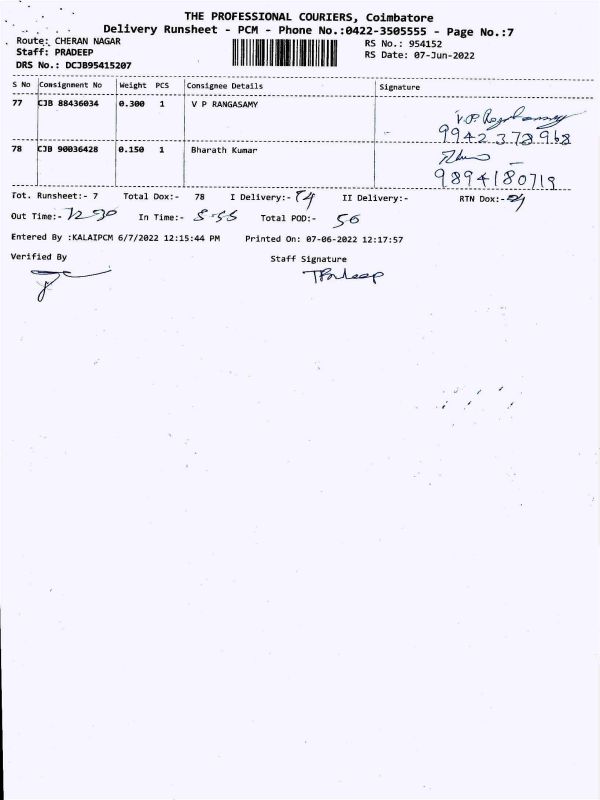 THE PROFESSIONAL COURIERS, Coimbatore
Delivery Runsheet - PCM - Phone No.:0422-3505555 - Page No.:7
Route: CHERAN NAGAR
RS No.: 954152
Staff: PRADEEP
RS Date: 07-Jun-2022
DRS No.: DCJB95415207
S No Consignment No Weight PCS Consignee Details Signature
77 CJB 88436034 0.300 1 V P RANGASAMY V.P. Rangasamy
9942378968
78 CJB 90036428 0.150 1 Bharath Kumar
9894180719
Tot. Runsheet:- 7 Total Dox:- 78 I Delivery:- 74 II Delivery:- RTN Dox:- 04
Out Time:- 12-30 In Time:- 5-55 Total POD:- 56
Entered By :KALAIPCM 6/7/2022 12:15:44 PM Printed On: 07-06-2022 12:17:57
Verified By Staff Signature